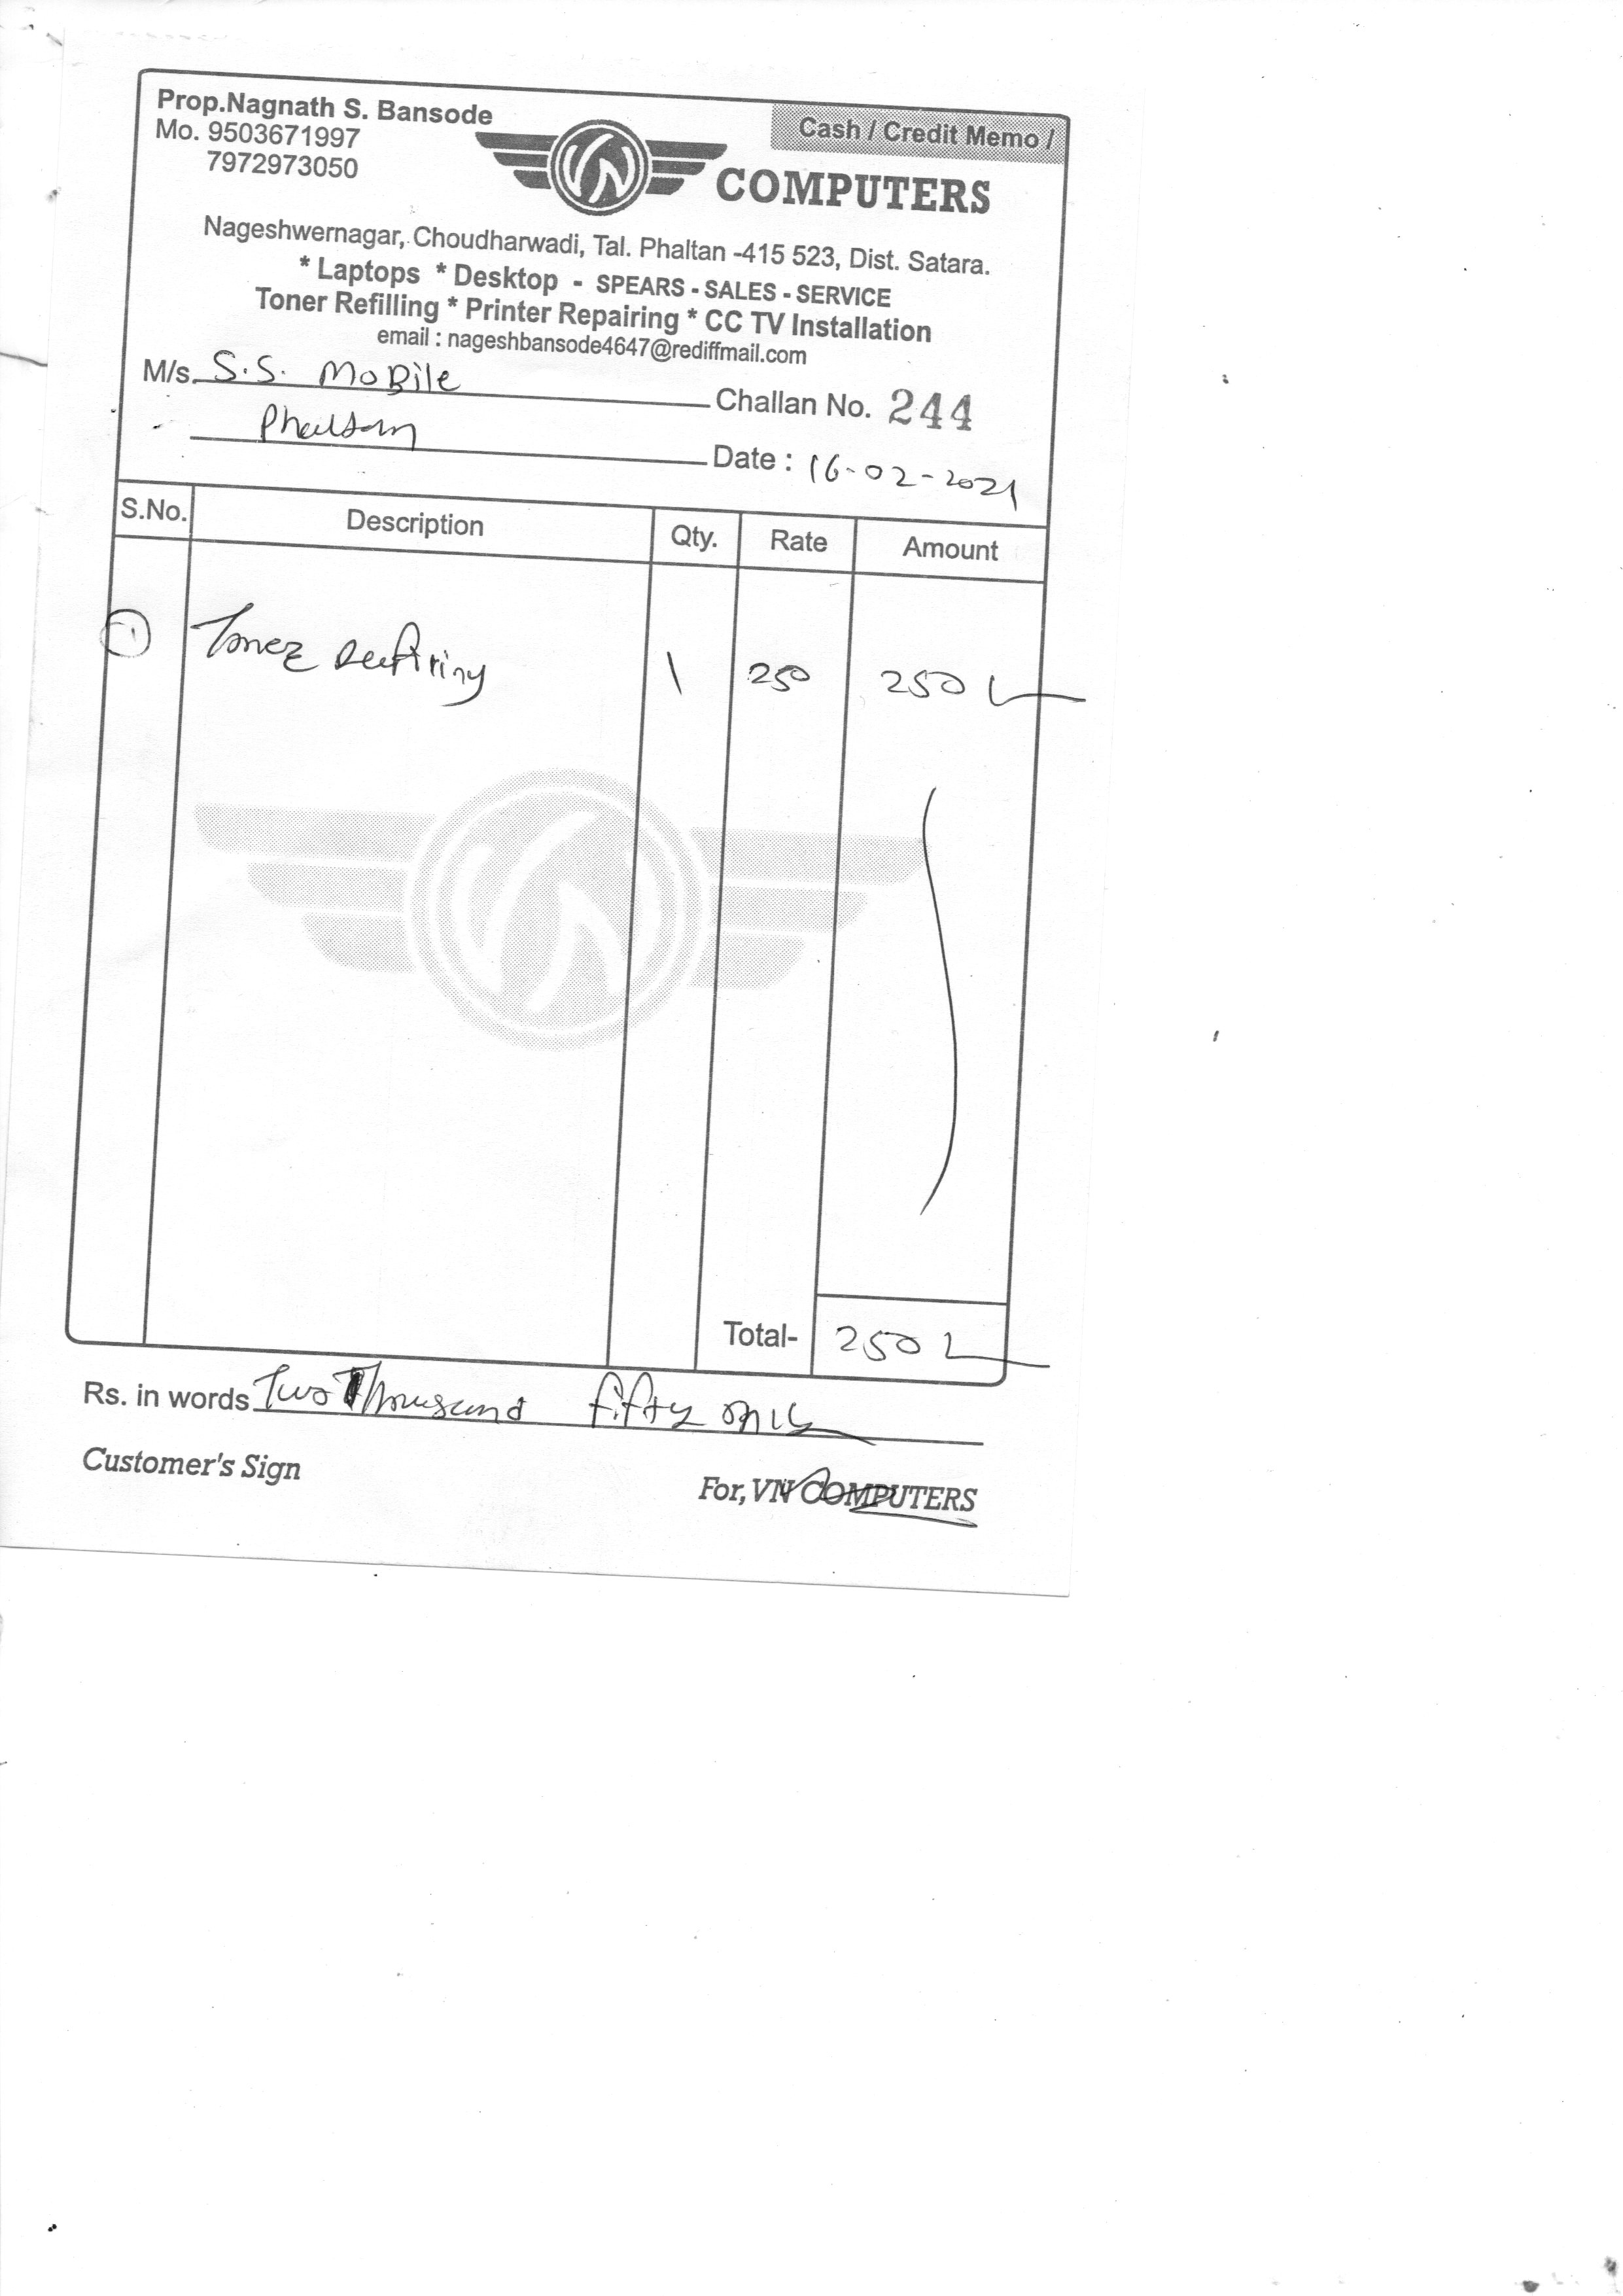 Prop.Nagnath S. Bansode
Cash / Credit Memo /
Mo. 9503671997
7972973050
VN COMPUTERS
Nageshwernagar, Choudharwadi, Tal. Phaltan -415 523, Dist. Satara.
* Laptops * Desktop - SPEARS - SALES - SERVICE
Toner Refilling * Printer Repairing * CC TV Installation
email : nageshbansode4647@rediffmail.com
M/s. S.S. MoBile
Challan No. 244
Date : 16-02-2021
S.No. Description Qty. Rate Amount
1 Toner 1 250 250
Total- 250
Rs. in words Two Thousand fifty only
Customer's Sign
For, VN COMPUTERS